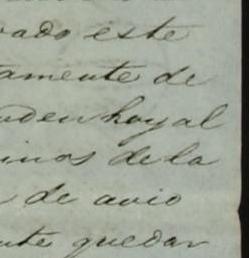 vado este
tamente de
nden hoy al
inos de la
de avio
nte quedar